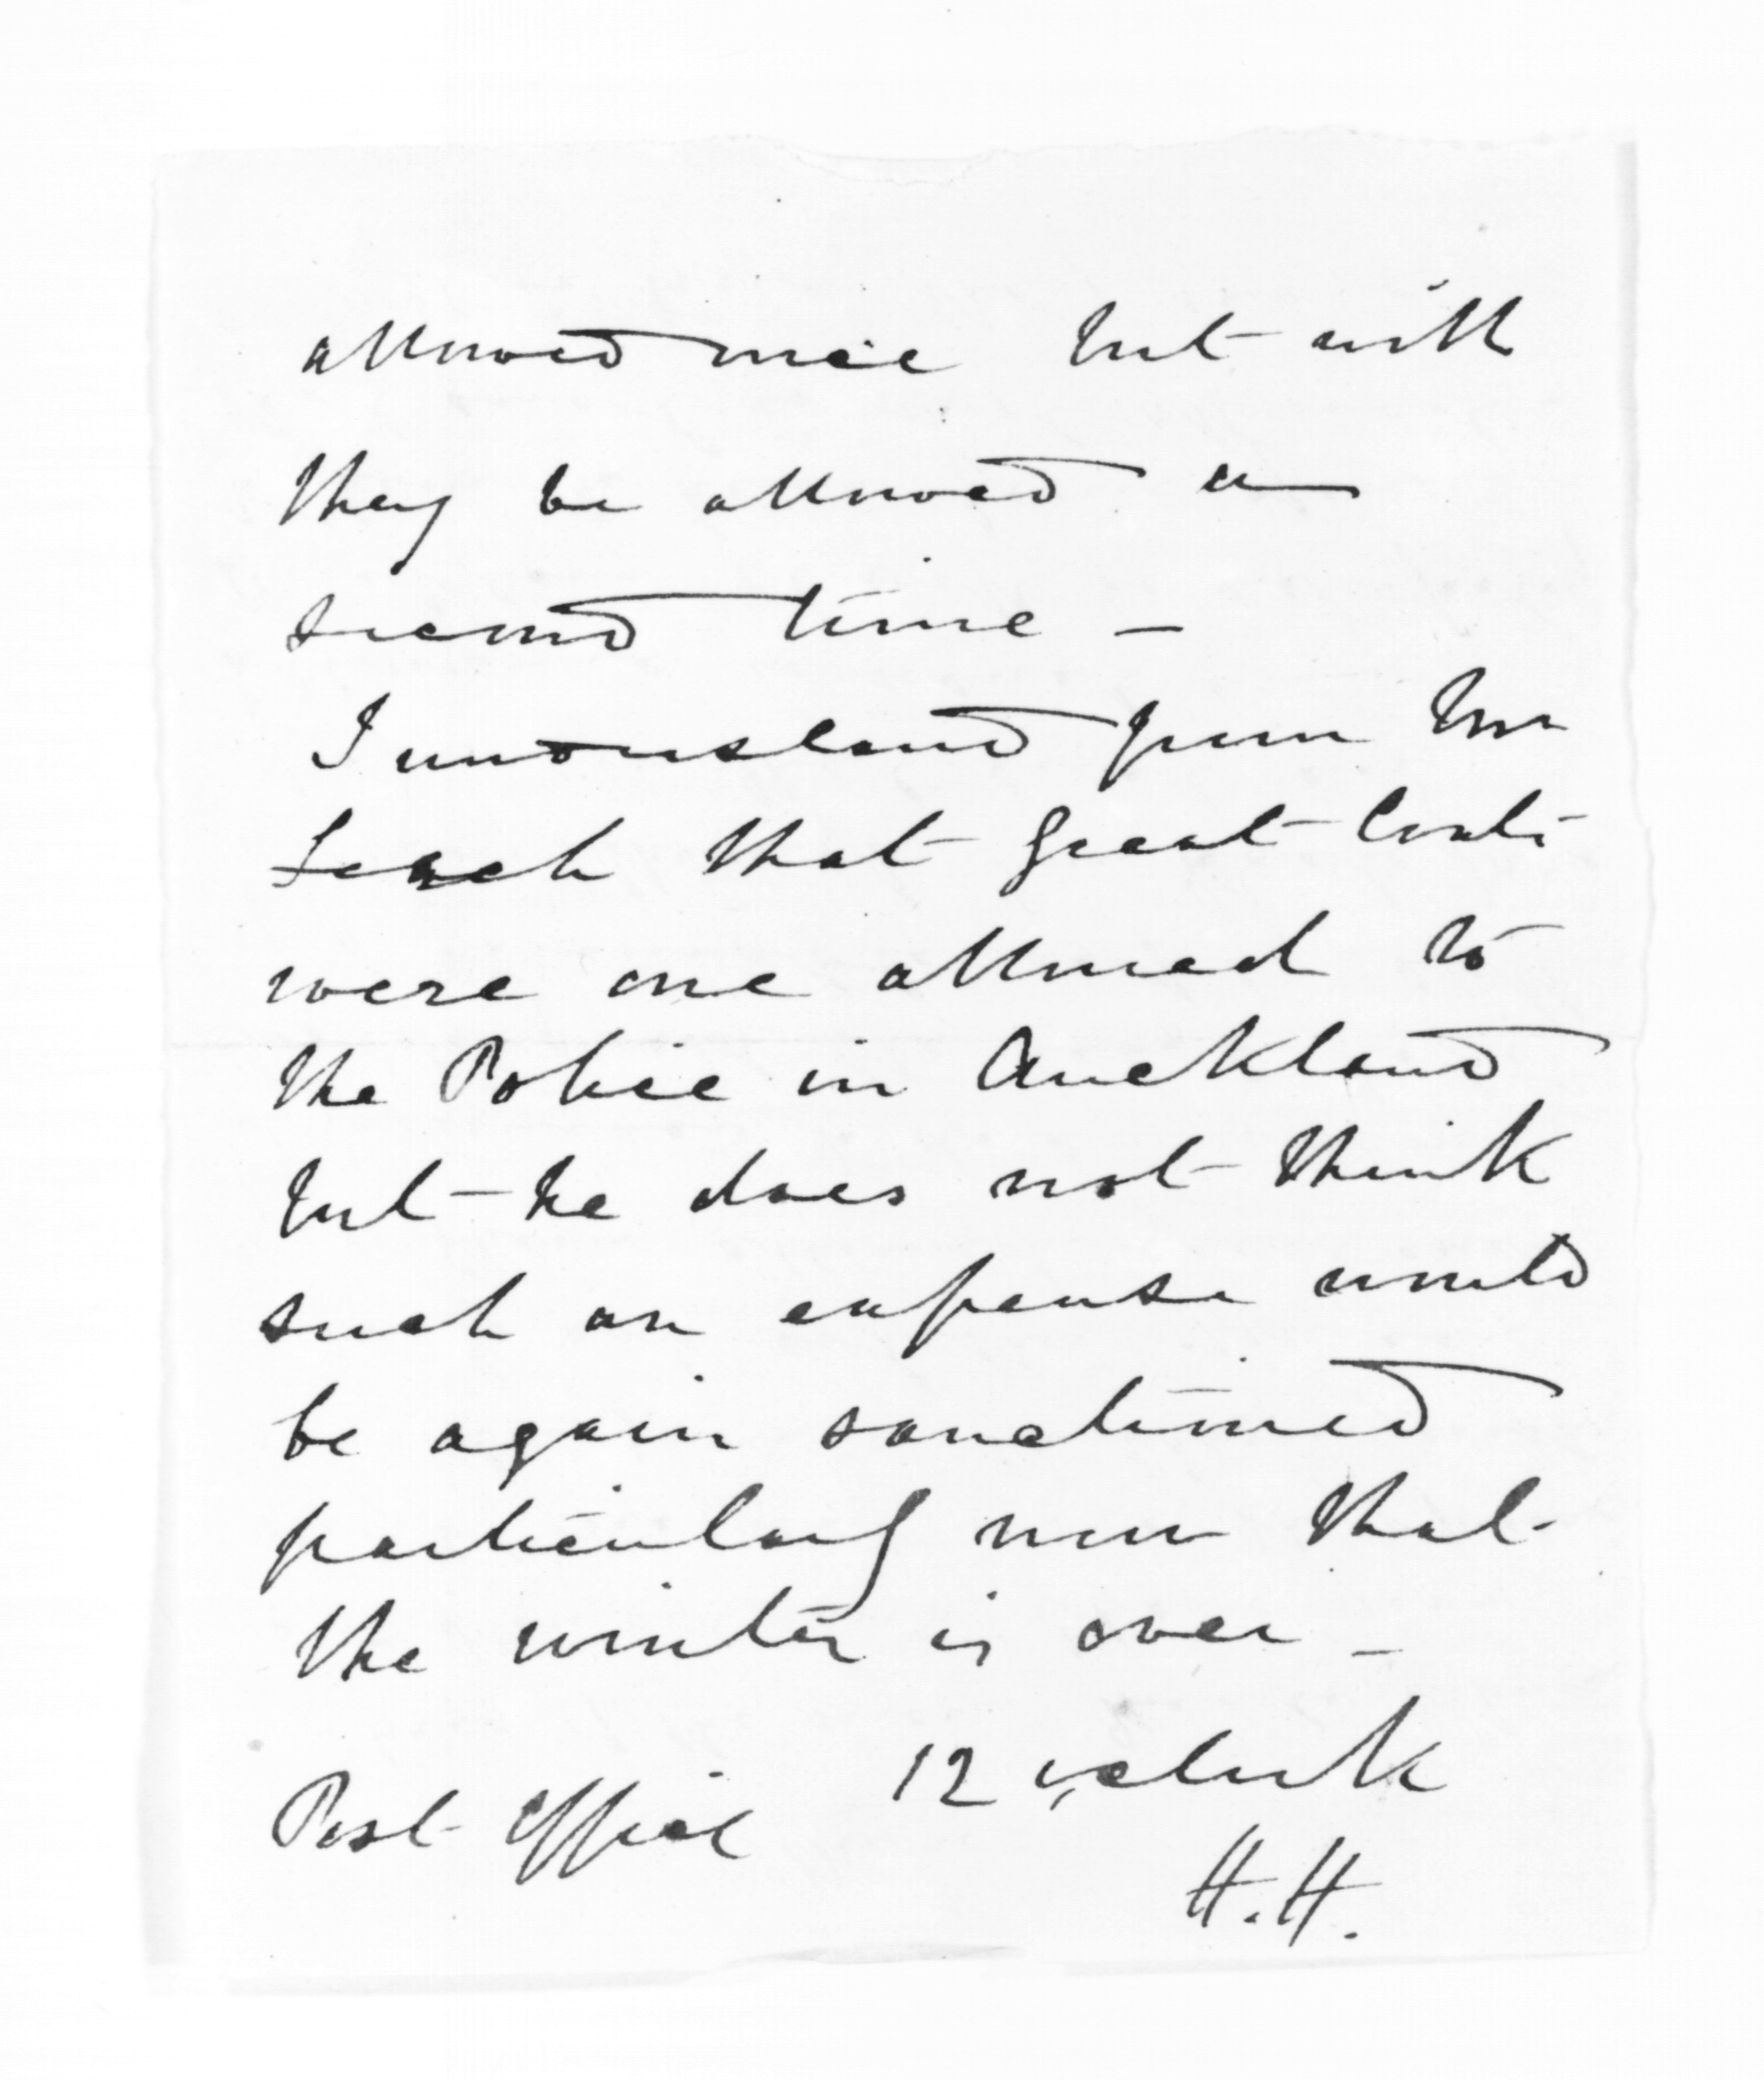 allowed once but will
they be allowed a
second time -
I understand from Mr
Leach that Great Coats
were once allowed to
the Police in Auckland
but he does not think
such an expense would
be again sanctioned
particularly now that
the winter is over -
Post Office 12 oclock
H.H.